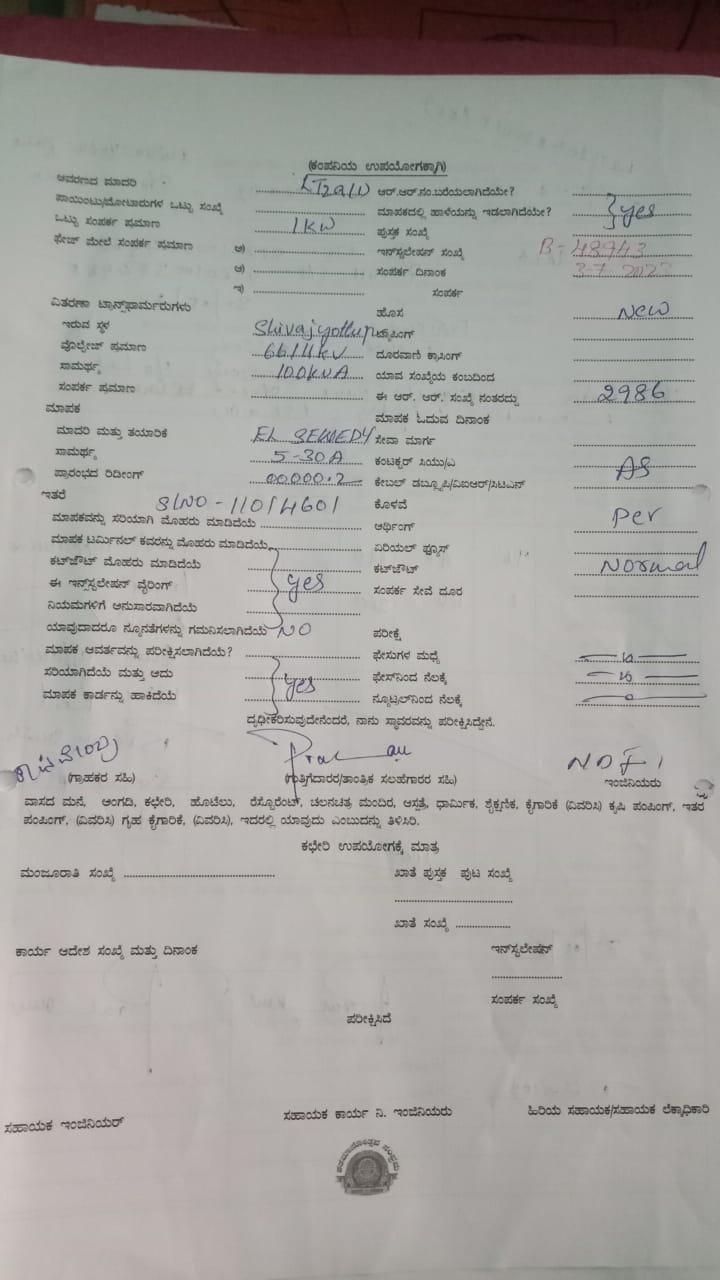 (ಕಂಪನಿಯ ಉಪಯೋಗಕ್ಕಾಗಿ)
ಆವರಣದ ಮಾದರಿ LT2a(i) ಆರ್.ಆರ್.ನಂ.ಬರೆಯಲಾಗಿದೆಯೇ?
ಪಾಯಿಂಟು/ಮೋಟಾರುಗಳ ಒಟ್ಟು ಸಂಖ್ಯೆ ಮಾಪಕದಲ್ಲಿ ಹಾಳೆಯನ್ನು ಇಡಲಾಗಿದೆಯೇ? yes
ಒಟ್ಟು ಸಂಪರ್ಕ ಪ್ರಮಾಣ 1KW ಪುಸ್ತಕ ಸಂಖ್ಯೆ
ಫೇಜ್ ಮೇಲೆ ಸಂಪರ್ಕ ಪ್ರಮಾಣ ಇನ್‌ಸ್ಟಲೇಷನ್ ಸಂಖ್ಯೆ B-48943
ಸಂಪರ್ಕ ದಿನಾಂಕ 3-7-2023
ಇ) ಸಂಪರ್ಕ
ವಿತರಣಾ ಟ್ರಾನ್ಸ್‌ಫಾರ್ಮರುಗಳು ಹೊಸ New
ಇರುವ ಸ್ಥಳ ಟ್ಯಾಪಿಂಗ್
ವೊಲ್ಟೇಜ್ ಪ್ರಮಾಣ ದೂರವಾಣಿ ಕ್ರಾಸಿಂಗ್
ಸಾಮರ್ಥ್ಯ 100KVA ಯಾವ ಸಂಖ್ಯೆಯ ಕಂಬದಿಂದ
ಸಂಪರ್ಕ ಪ್ರಮಾಣ ಈ ಆರ್. ಆರ್. ಸಂಖ್ಯೆ ನಂತರದ್ದು 2986
ಮಾಪಕ ಮಾಪಕ ಓದುವ ದಿನಾಂಕ
ಮಾದರಿ ಮತ್ತು ತಯಾರಿಕೆ ಸೇವಾ ಮಾರ್ಗ
ಸಾಮರ್ಥ್ಯ 5-30A ಕಂಟಕ್ಟರ್ ಸಿಯು/ಎ AS
ಪ್ರಾರಂಭದ ರಿಡೀಂಗ್ 00000.2 ಕೇಬಲ್ ಡಬ್ಲ್ಯೂಪಿ/ಐಆರ್/ಸಿಟಿಎನ್
ಇತರೆ SLNO-11014601 ಕೊಳವೆ per
ಮಾಪಕವನ್ನು ಸರಿಯಾಗಿ ಮೊಹರು ಮಾಡಿದೆಯೆ ಆರ್ಥಿಂಗ್
ಮಾಪಕ ಟರ್ಮಿನಲ್ ಕವರನ್ನು ಮೊಹರು ಮಾಡಿದೆಯೆ ಏರಿಯಲ್ ಫ್ಯೂಸ್ Normal
ಕಟ್‌ಔಟ್ ಮೊಹರು ಮಾಡಿದೆಯೆ ಕಟ್‌ಔಟ್
ಈ ಇನ್‌ಸ್ಟಲೇಷನ್ ವೈರಿಂಗ್ yes ಸಂಪರ್ಕ ಸೇವೆ ದೂರ
ನಿಯಮಗಳಿಗೆ ಅನುಸಾರವಾಗಿದೆಯೆ
ಯಾವುದಾದರೂ ನ್ಯೂನತೆಗಳನ್ನು ಗಮನಿಸಲಾಗಿದೆಯೆ NO ಪರೀಕ್ಷೆ
ಮಾಪಕ ಆವರ್ತವನ್ನು ಪರೀಕ್ಷಿಸಲಾಗಿದೆಯೆ? ಫೇಸುಗಳ ಮಧ್ಯೆ
ಸರಿಯಾಗಿದೆಯೆ ಮತ್ತು ಅದು yes ಫೇಸ್‌ನಿಂದ ನೆಲಕ್ಕೆ
ಮಾಪಕ ಕಾರ್ಡನ್ನು ಹಾಕಿದೆಯೆ ನ್ಯೂಟ್ರಲ್‌ನಿಂದ ನೆಲಕ್ಕೆ
ದೃಢೀಕರಿಸುವುದೇನೆಂದರೆ, ನಾನು ಸ್ಥಾವರವನ್ನು ಪರೀಕ್ಷಿಸಿದ್ದೇನೆ.
(ಗ್ರಾಹಕರ ಸಹಿ) (ಗುತ್ತಿಗೆದಾರರ/ತಾಂತ್ರಿಕ ಸಲಹೆಗಾರರ ಸಹಿ) ಇಂಜಿನಿಯರು
ವಾಸದ ಮನೆ, ಅಂಗಡಿ, ಕಛೇರಿ, ಹೊಟೆಲು, ರೆಸ್ಟೋರೆಂಟ್, ಚಲನಚಿತ್ರ ಮಂದಿರ, ಆಸ್ಪತ್ರೆ, ಧಾರ್ಮಿಕ, ಶೈಕ್ಷಣಿಕ, ಕೈಗಾರಿಕೆ (ವಿವರಿಸಿ) ಕೃಷಿ ಪಂಪಿಂಗ್, ಇತರ
ಪಂಪಿಂಗ್, (ವಿವರಿಸಿ) ಗೃಹ ಕೈಗಾರಿಕೆ, (ವಿವರಿಸಿ), ಇದರಲ್ಲಿ ಯಾವುದು ಎಂಬುದನ್ನು ತಿಳಿಸಿರಿ.
ಕಛೇರಿ ಉಪಯೋಗಕ್ಕೆ ಮಾತ್ರ
ಮಂಜೂರಾತಿ ಸಂಖ್ಯೆ ಖಾತೆ ಪುಸ್ತಕ ಪುಟ ಸಂಖ್ಯೆ
ಖಾತೆ ಸಂಖ್ಯೆ
ಕಾರ್ಯ ಆದೇಶ ಸಂಖ್ಯೆ ಮತ್ತು ದಿನಾಂಕ ಇನ್‌ಸ್ಟಲೇಷನ್
ಸಂಪರ್ಕ ಸಂಖ್ಯೆ
ಪರೀಕ್ಷಿಸಿದೆ
ಸಹಾಯಕ ಇಂಜಿನಿಯರ್ ಸಹಾಯಕ ಕಾರ್ಯ ನಿ. ಇಂಜಿನಿಯರು ಹಿರಿಯ ಸಹಾಯಕ/ಸಹಾಯಕ ಲೆಕ್ಕಾಧಿಕಾರಿ